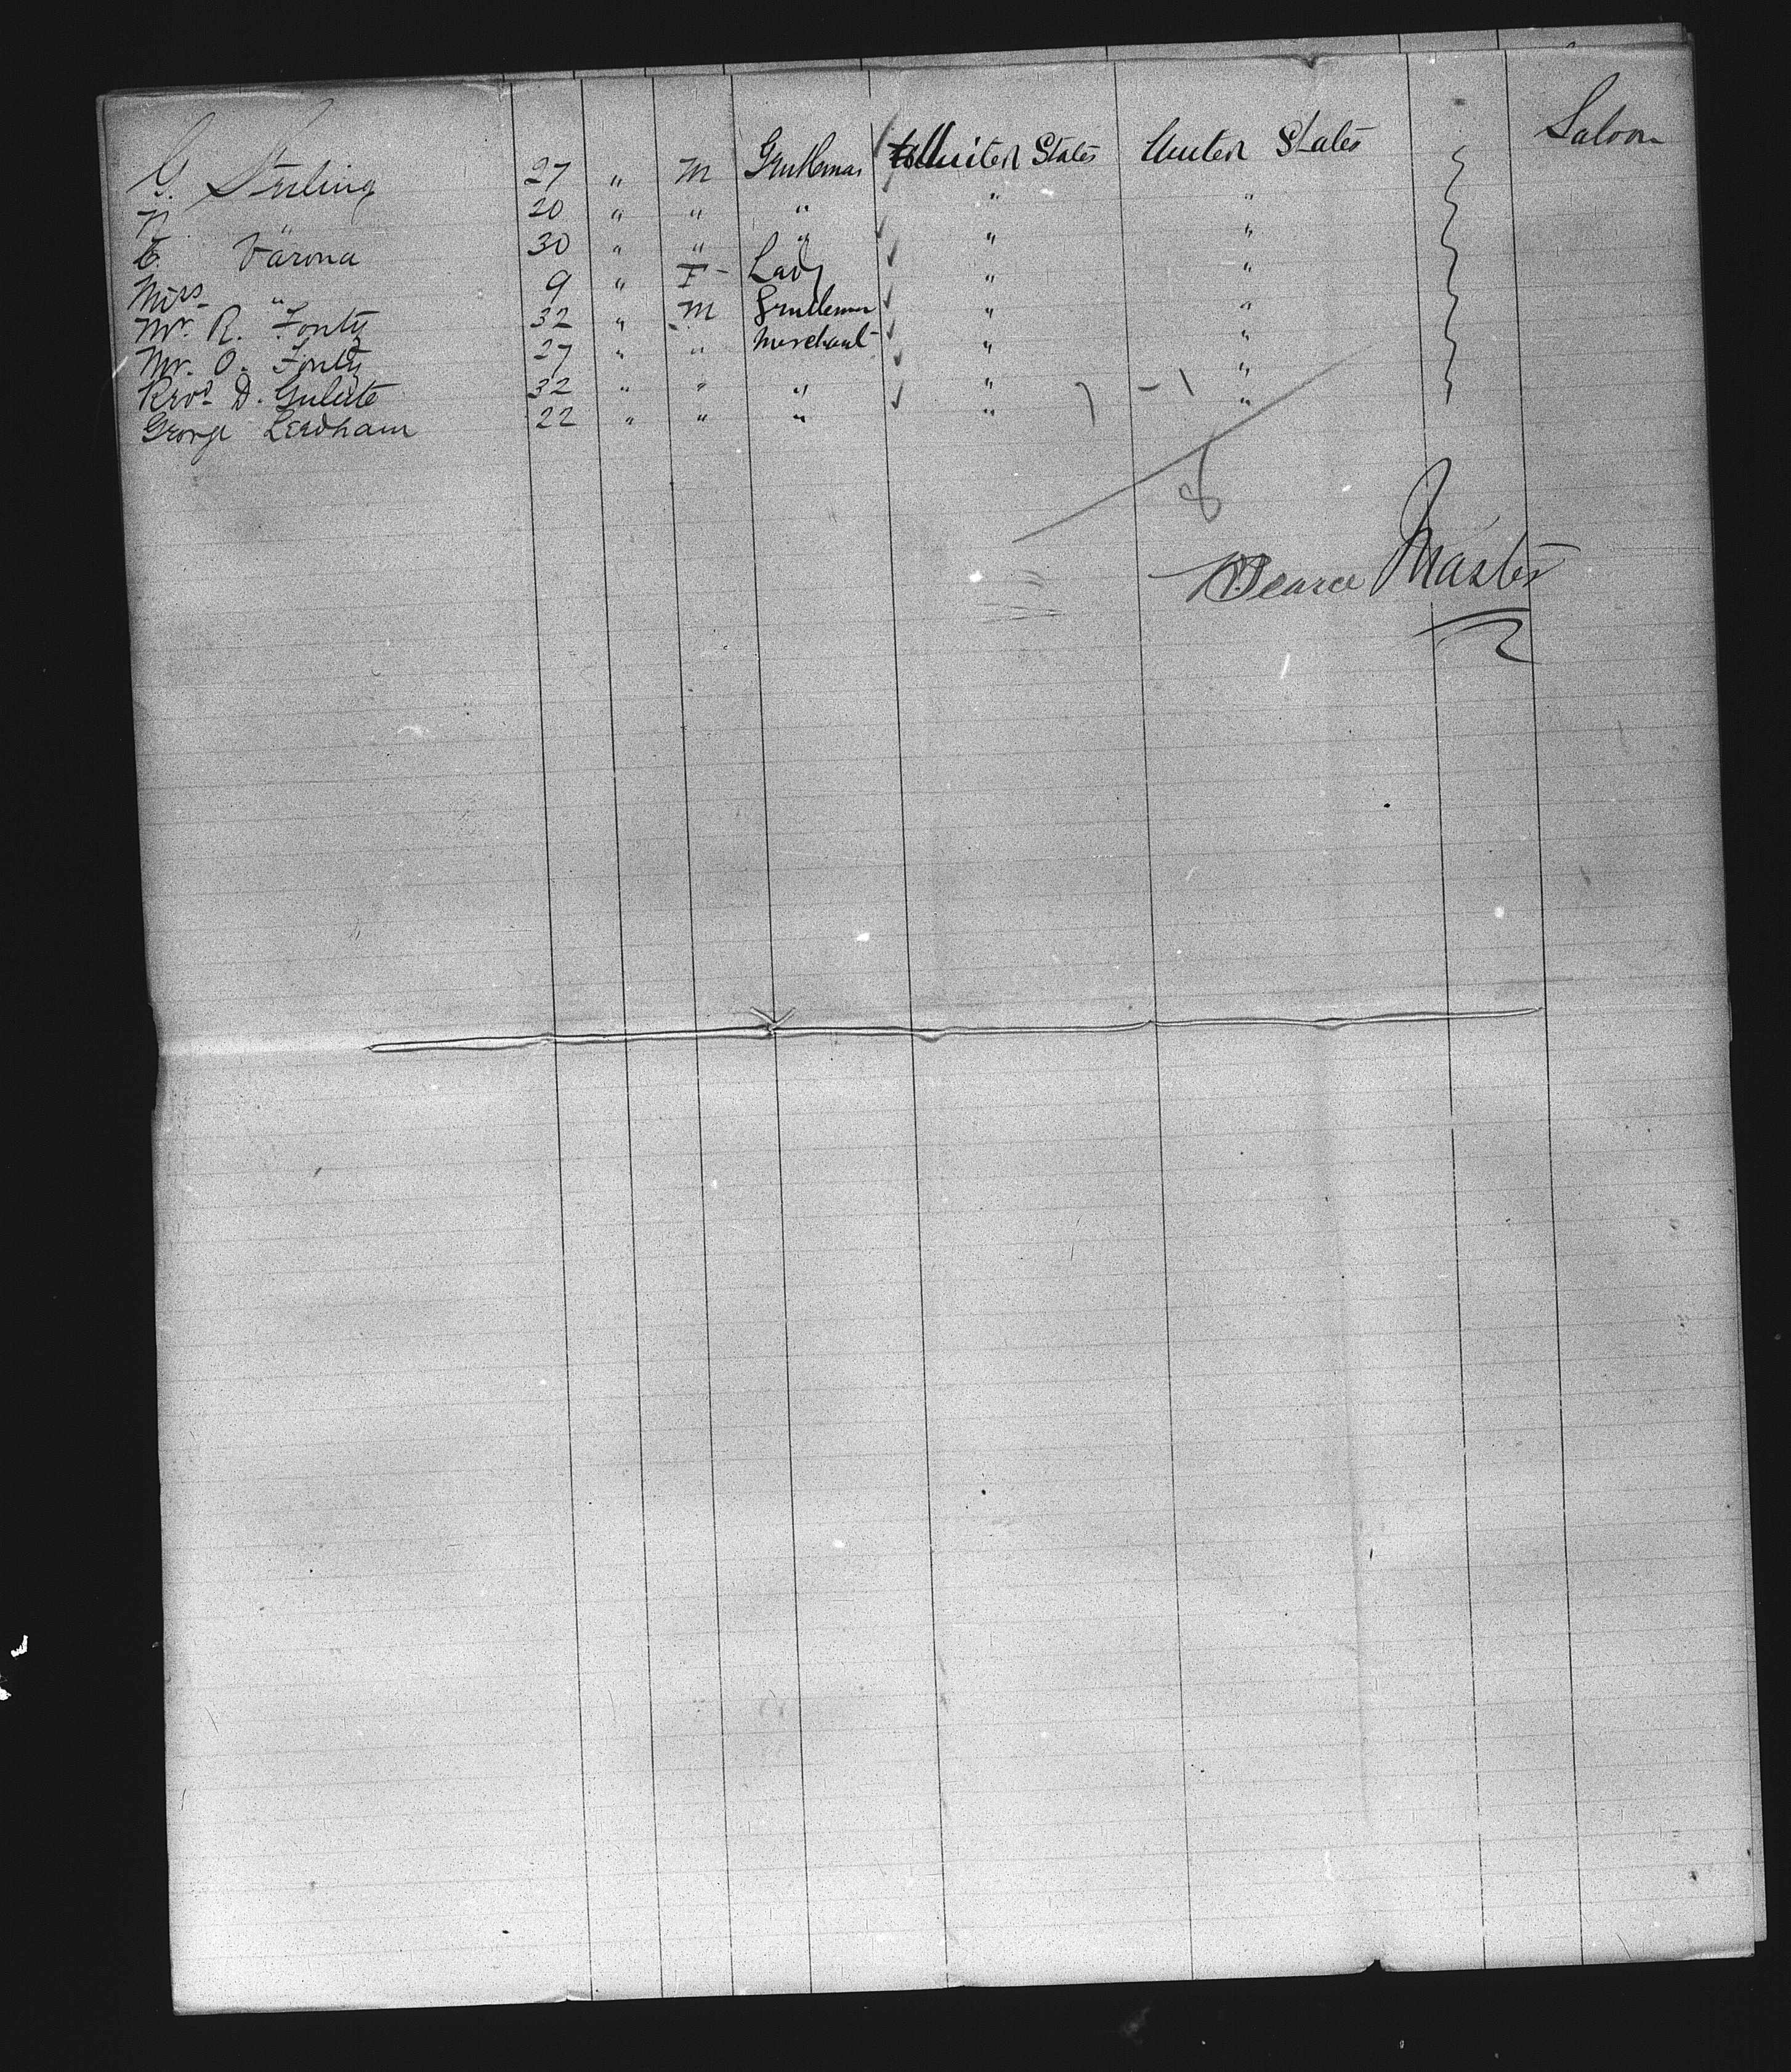 G. Sterling 27 " M Gentleman United States United States Saloon
N. " 20 " " " " "
E. Varona 30 " " " " "
Miss " 9 " F Lady " "
Mr. R. Fonty 32 " M Gentleman " "
Mr. O. Fonty 27 " " Merchant " "
Revd. D. Gulste 32 " " " " "
George Leadham 22 " " " " "
7 - 1
8
Pearce Master